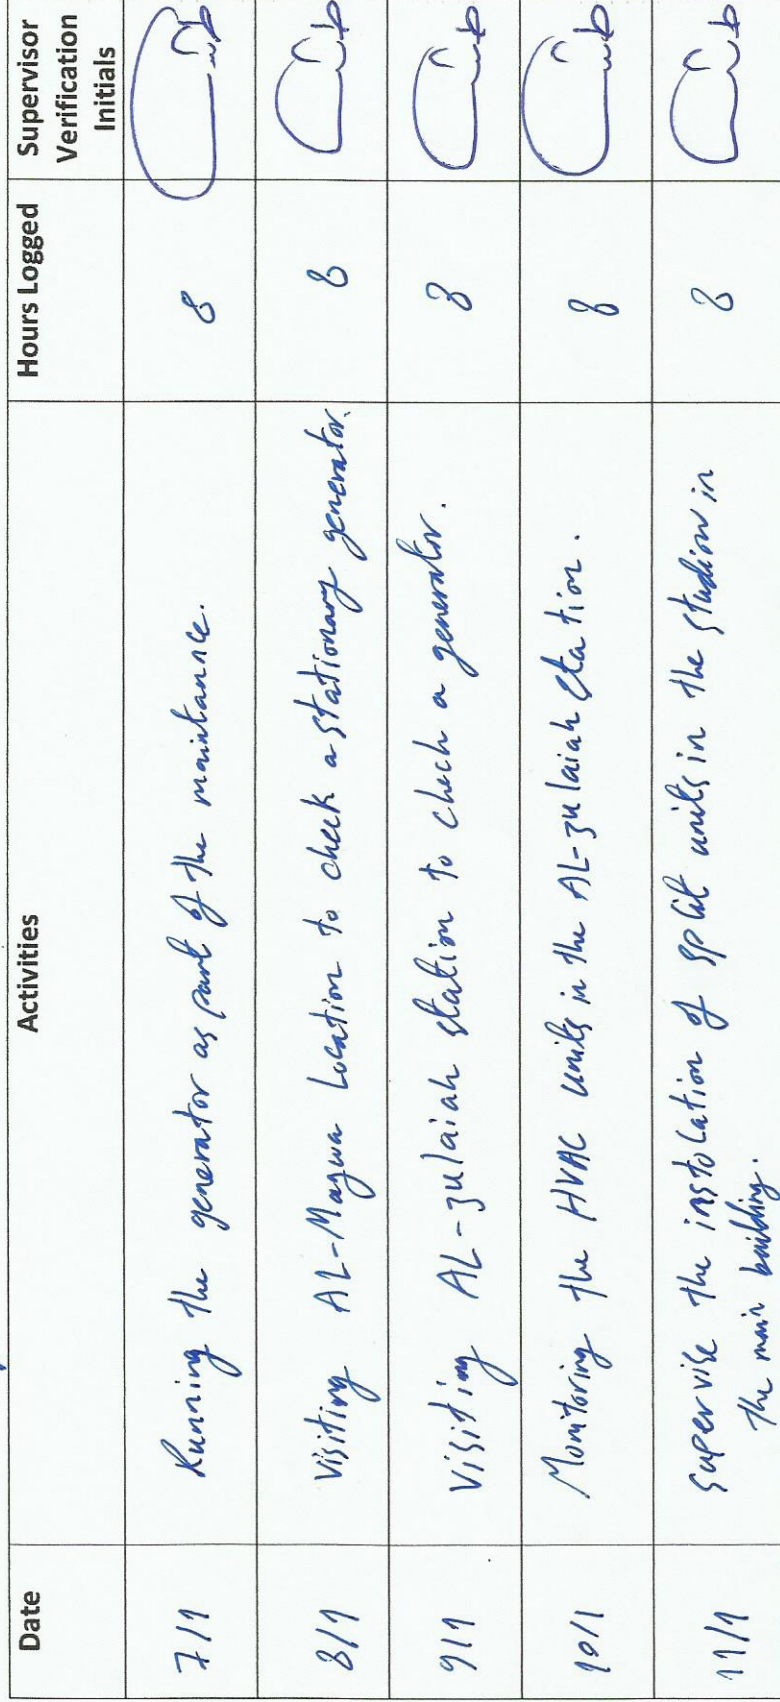 Date Activities Hours Logged Supervisor Verification Initials
7/1 Running the generator as part of the maintanance. 8
8/1 Visiting AL-Magwa Location to check a stationary generator. 8
9/1 Visiting AL-zulaiah station to chech a generator. 8
10/1 Monitoring the HVAC units in the AL-zulaiah station. 8
11/1 supervise the instolation of split units in the studiow in 8
the main building.